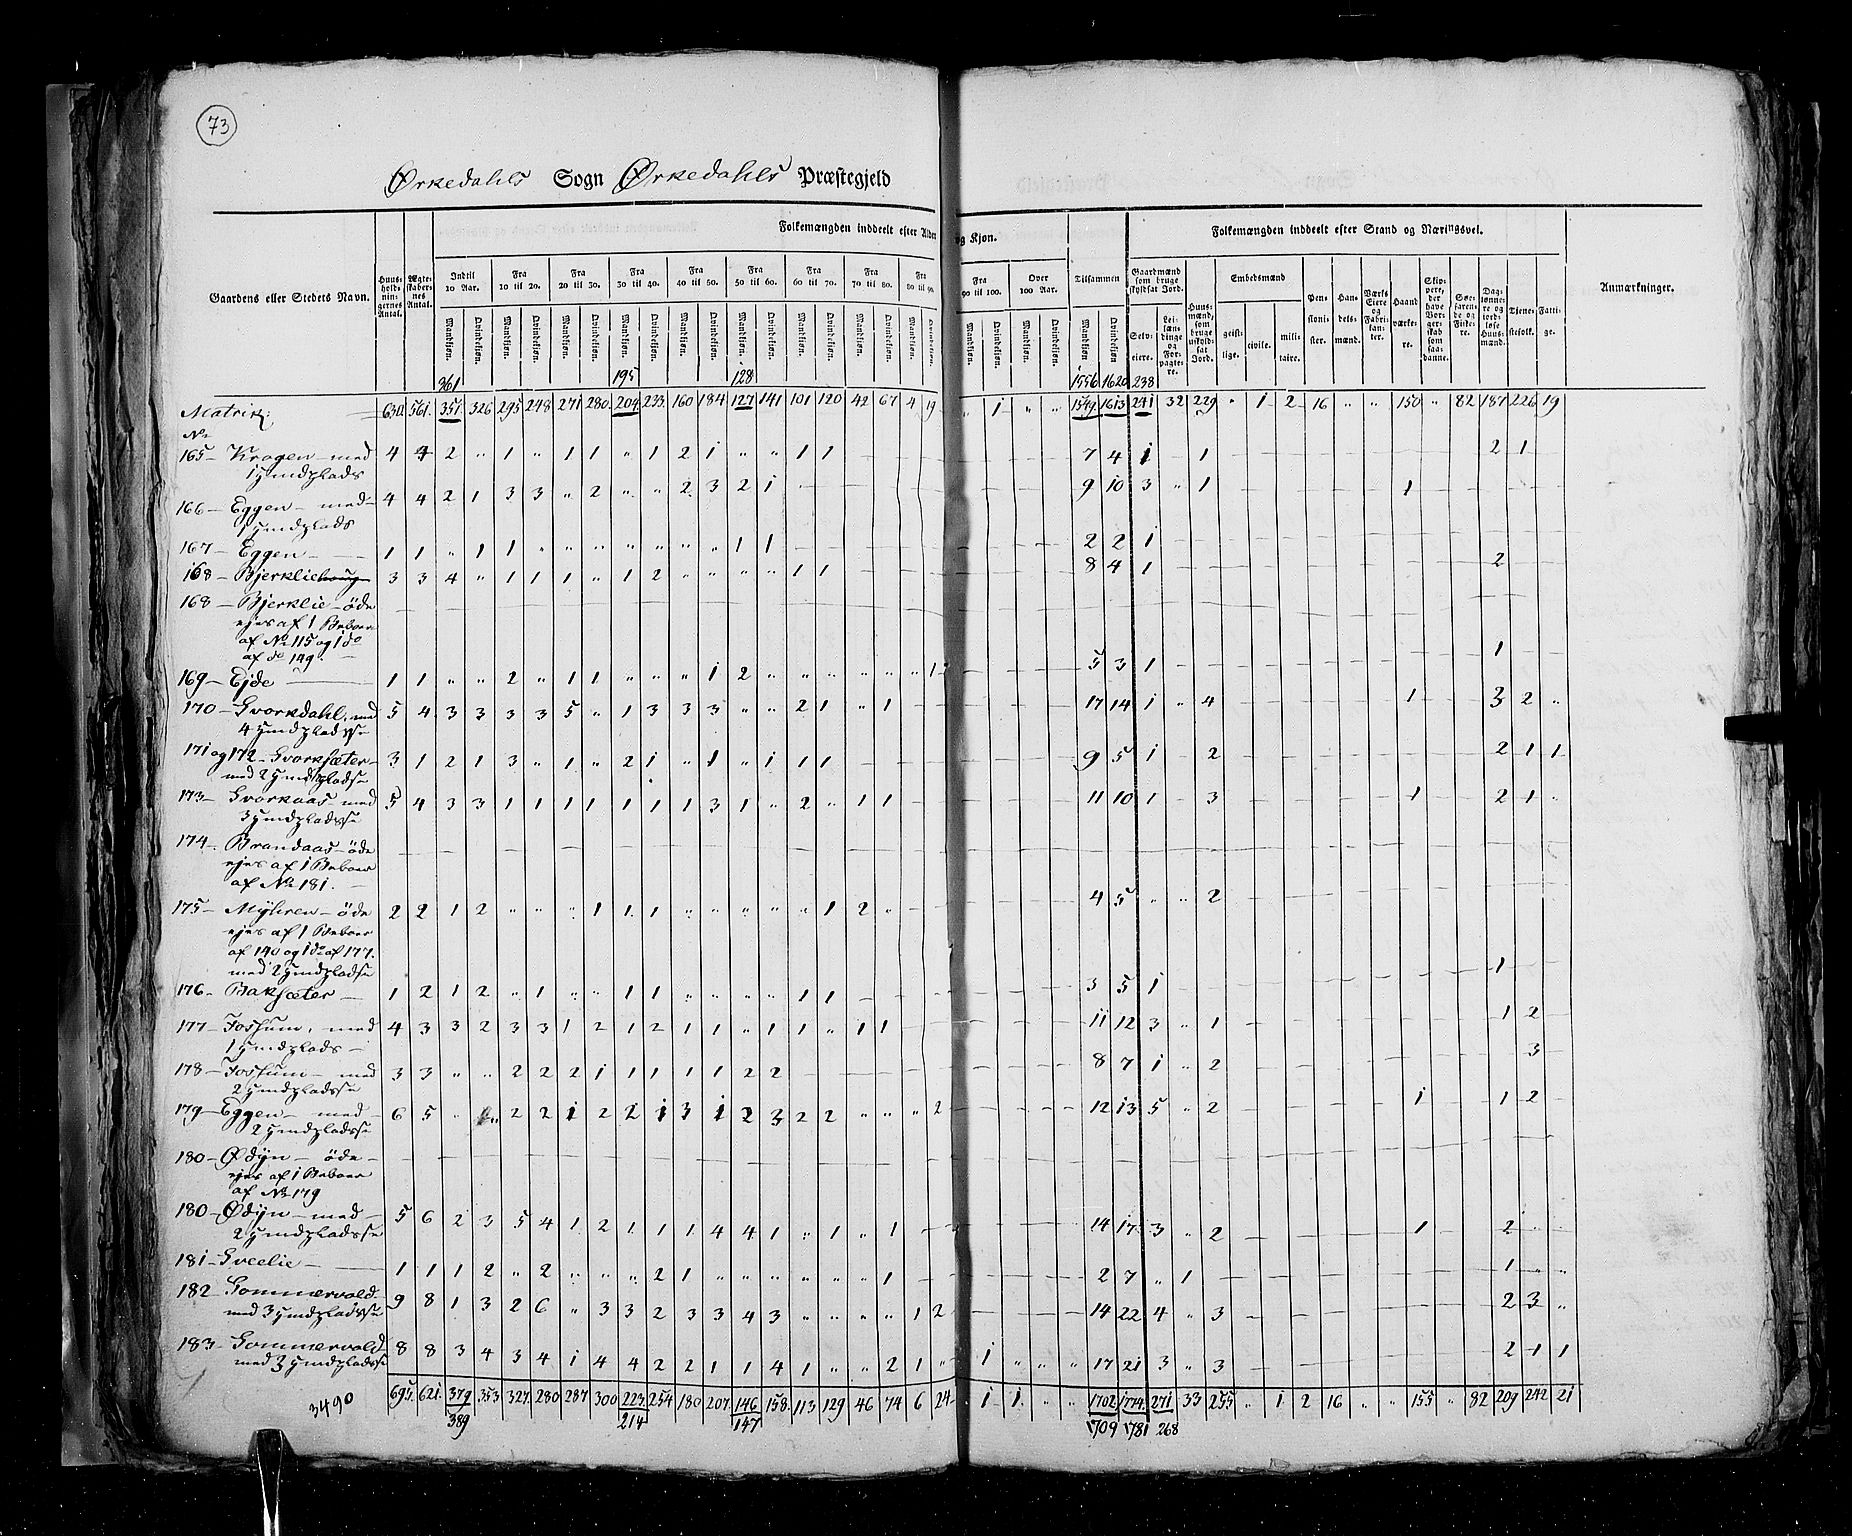 73
Ørkedahls Sogn Ørkedahls Præstegjeld
Gaardens eller Stedets Navn.
Huusholdningernes Antal.
Ægteskabernes Antal.
Folkemængden inddeelt efter Alder og Kjøn.
Indtil 10 Aar. Fra 10 til 20. Fra 20 til 30. Fra 30 til 40. Fra 40 til 50. Fra 50 til 60. Fra 60 til 70. Fra 70 til 80. Fra 80 til 90. Fra 90 til 100. Over 100 Aar. Tilsammen
Mandkjøn. Qvindekjøn.
Folkemængden inddeelt efter Stand og Næringsvei.
Gaardmænd som bruge skyldsat Jord.
Selveiere. Leilændinge og Forpagtere.
Huusmænd, som bruge uskyldsat Jord.
Embedsmænd
geistlige. civile. militaire.
Pensionister. Handelsmænd. Værks Eiere og Fabrikanter. Haandværkere.
Skippere, der have Borgerskab som saadanne.
Søefarende og Fiskere. Daglønnere og jordløse Huusmænd. Tjenestefolk. Fattige.
Anmærkninger.
361 195 128 1556 1620 238
Matrik: 630 561 351 326 295 248 271 280 204 233 160 184 127 141 101 120 42 67 4 19 " 1 " " 1549 1613 241 32 229 " 1 2 16 " " 150 " 82 187 226 19
No
165 – Krogen – med 4 4 2 " 1 " 1 1 " 1 2 1 " " 1 1 7 4 1 – 1 2 1
1 Huusplads
166 – Eggen – med 4 4 2 1 3 3 " 2 " " 2 3 2 1 9 10 3 " 1 1
1 Huusplads
167 – Eggen – 1 1 " 1 1 " " " " " " " 1 1 2 2 1
168 – Bjerklie 3 3 4 " 1 1 1 " 1 2 " " " " 1 1 8 4 1 2
168 – Bjerklie – öde
ejes af 1 Beboer
af No 115 og 1 do
af do 149.
169 – Ejde 1 1 " " 2 " 1 1 " " " 1 2 " " " " " " 1 5 3 1 1
170 – Svorkdahl, med 5 4 3 3 3 3 5 " 1 3 3 3 " " 2 1 " 1 17 14 1 " 4 1 3 2 "
4 Huuspladse
171 og 172 – Svorksæter 3 1 2 1 3 " 1 " 2 1 " 1 " 1 1 1 9 5 1 – 2 2 1 1
med 2 Huuspladse
173 – Svorkaas – med 5 4 3 3 1 1 1 1 1 1 1 3 1 " 2 " 1 1 11 10 1 – 3 1 2 1 "
3 Huuspladse
174 – Brandaas – öde
ejes af 1 Beboer
af No 181.
175 – Myhren – öde 2 2 1 2 " " " 1 1 1 " " " " " 1 2 " 4 5 " " 2
ejes af 1 Beboer
af 140 og 1 do af 177.
med 2 Huuspladse
176 – Baksæter – 1 2 1 2 " 1 " " 1 1 " " " " 1 1 3 5 1 1
177 – Fossum, med 4 3 3 2 3 3 1 2 1 2 1 1 " 1 1 " 1 1 11 12 3 " 1 1 2
1 Huusplads –
178 – Fossum – med 3 3 " " 2 2 2 1 1 1 1 1 2 2 8 7 1 " 2 3
2 Huuspladse
179 – Eggen – med 6 5 " " 2 2 1 2 2 1 3 1 2 3 2 2 " " " 2 12 13 5 " 2 1 1 2
2 Huuspladse
180 – Ødÿn – öde –
ejes af 1 Beboer
af No 179
180 – Ødÿn – med – 5 6 2 3 5 4 1 2 1 1 1 4 4 1 " 1 " 1 14 17 3 " 2 1 2
2 Huuspladse
181 – Sveelie – 1 1 1 2 " 2 " " " 2 1 " " " " " " 1 2 7 " 1 1 " "
182 Sommervold – 9 8 1 3 2 6 " 3 3 2 3 3 4 3 " " " " 1 2 14 22 4 – 3 2 3 "
med 3 Huuspladse
183 – Sommervold 8 8 3 4 3 4 1 4 4 2 2 1 1 4 1 " " 2 1 " 1 " " " 17 21 3 " 3 2 1 1
med 3 Huuspladse
3490 695. 621. 379 353. 327. 280 287 300 223. 254 180 207. 146 158. 113 129 46 74 6 24 1 1 " " 1702 1774 271 33 255 " 1 2 16 " " 155 " 82 209 242 21
389 214 147 1709 1781 268